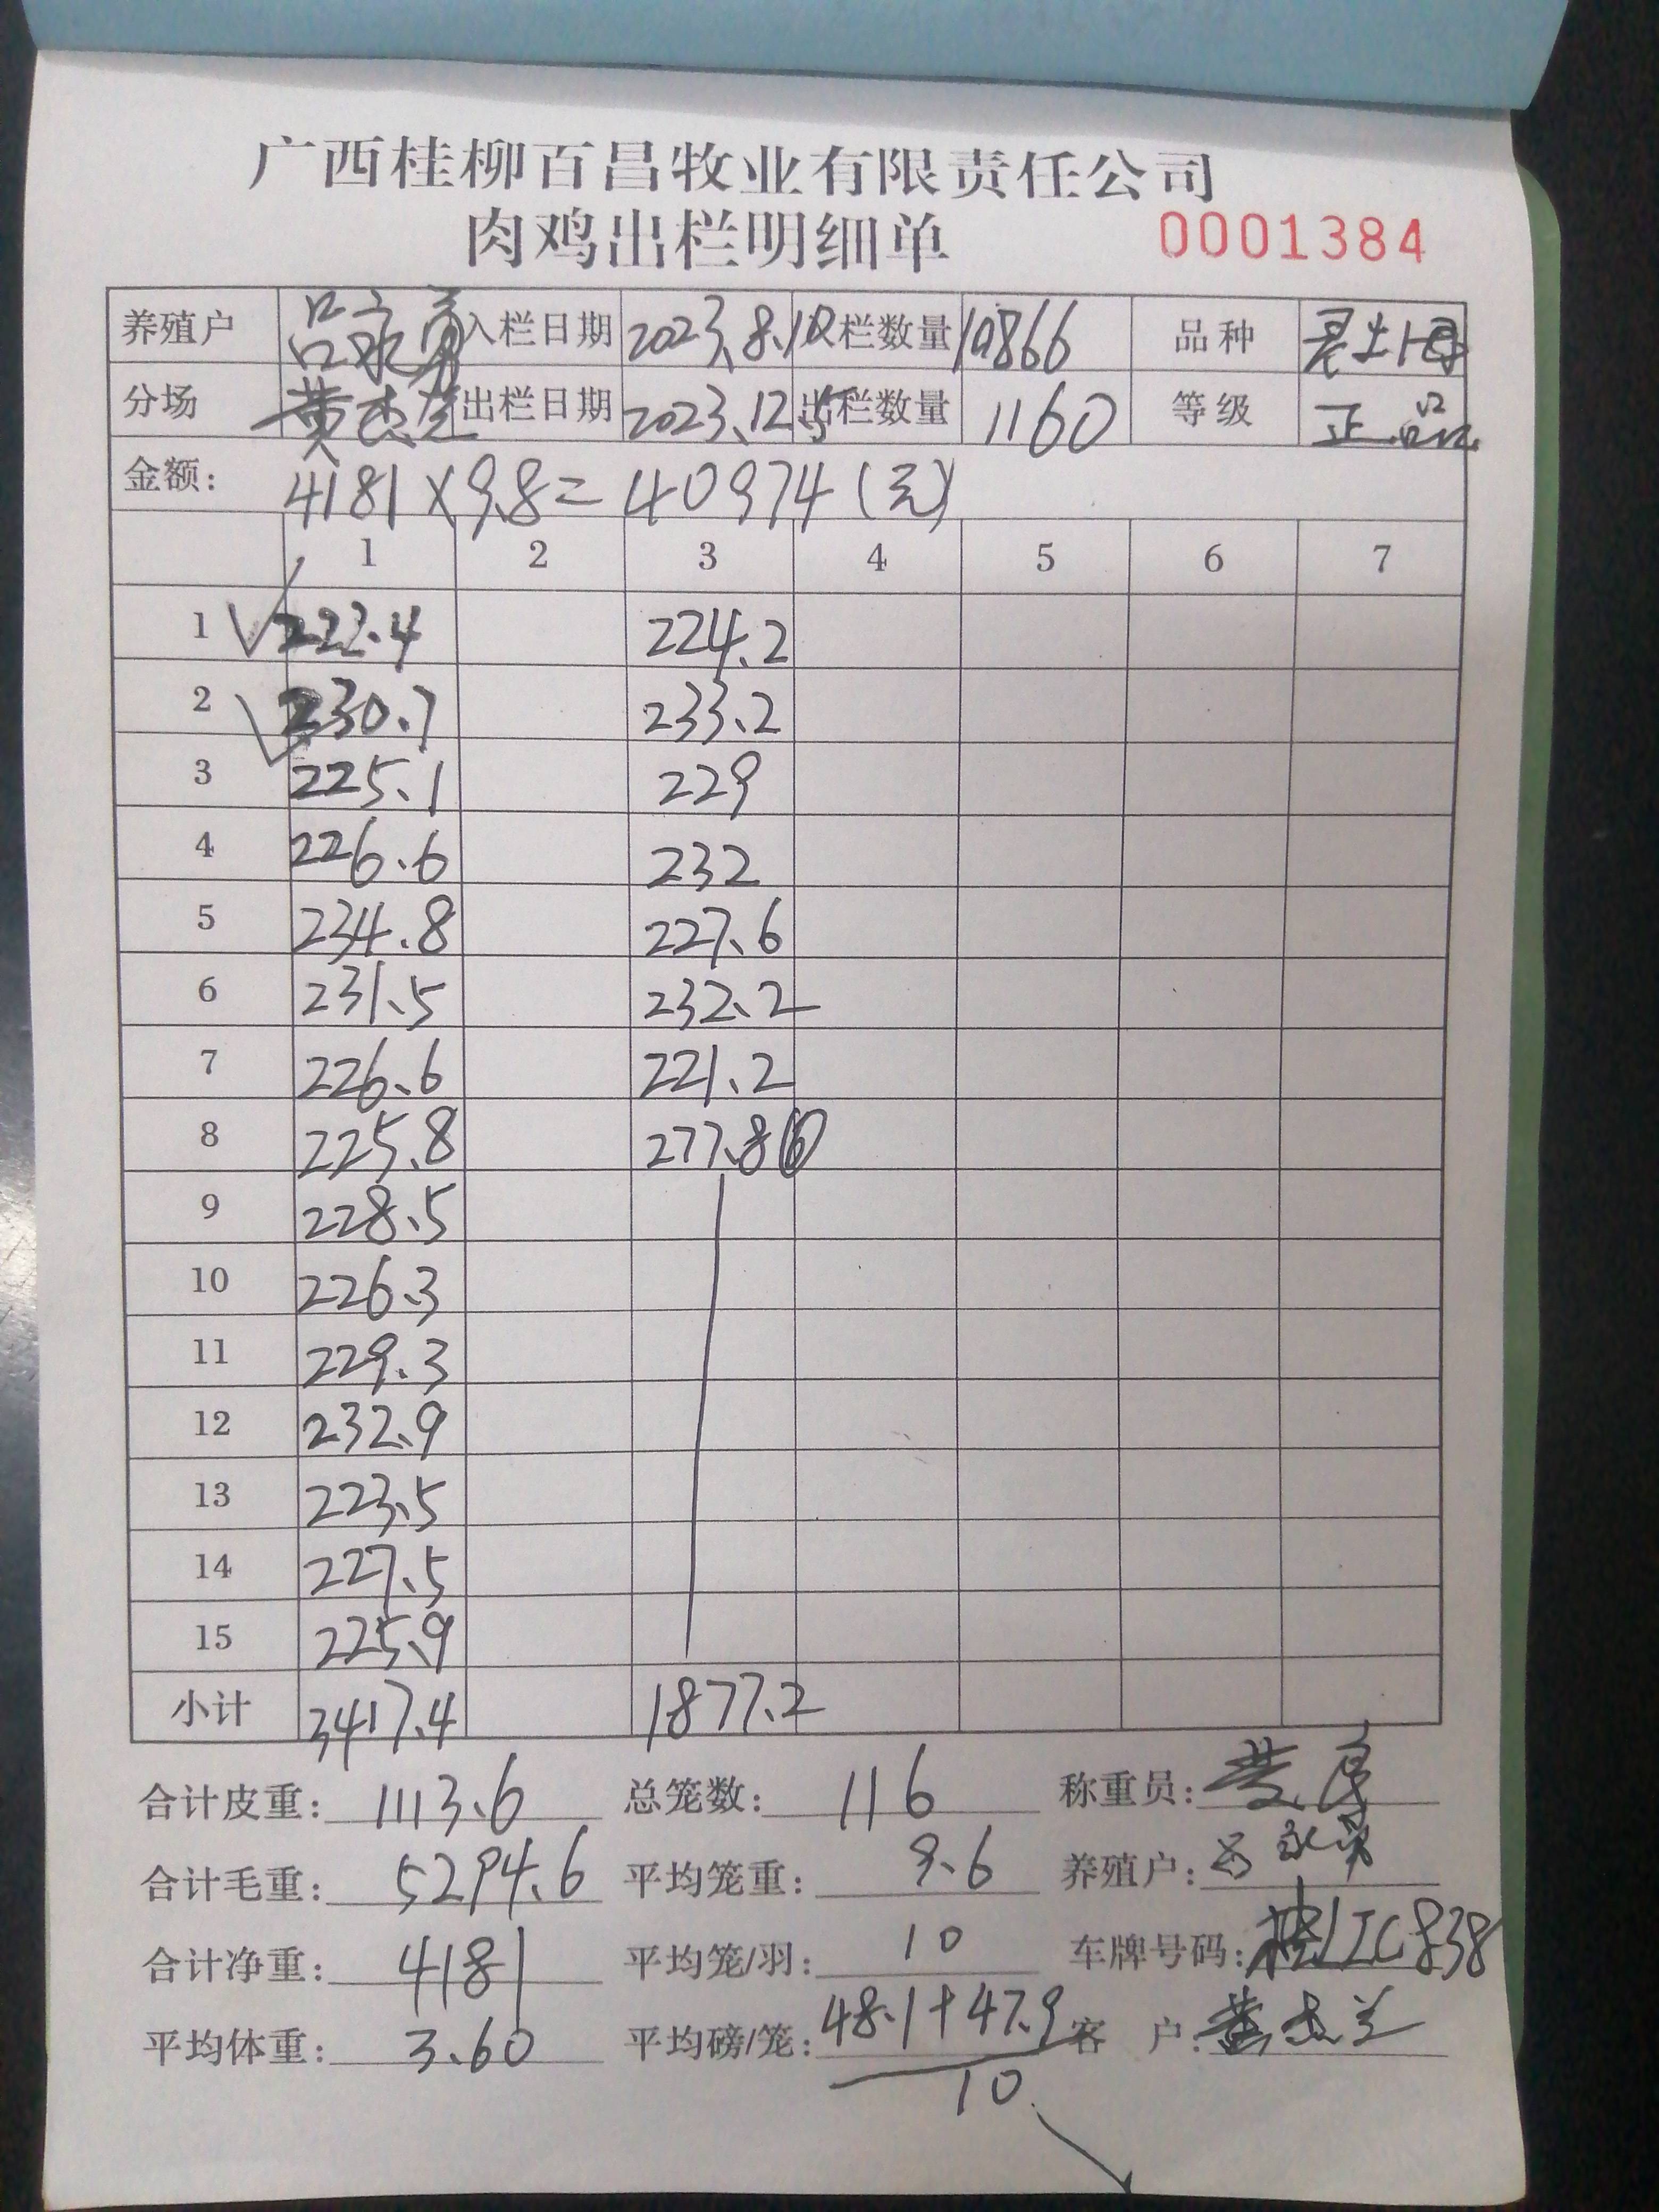 广西桂柳百昌牧业有限责任公司
肉鸡出栏明细单 0001384
养殖户 吕永勇 入栏日期 2023.8.12 栏数量 10866 品种 灵土1母
分场 黄杰兰 出栏日期 2023.12.5 出栏数量 1160 等级 正品
金额: 4181×9.8=40974(元)
1 2 3 4 5 6 7
1 222.4 224.2
2 230.7 233.2
3 225.1 229
4 226.6 232
5 234.8 227.6
6 231.5 232.2
7 226.6 221.2
8 225.8 277.8⑥
9 228.5
10 226.3
11 229.3
12 232.9
13 223.5
14 227.5
15 225.9
小计 3417.4 1877.2
合计皮重: 1113.6 总笼数: 116 称重员:
合计毛重: 5294.6 平均笼重: 9.6 养殖户:
合计净重: 4181 平均笼/羽: 10 车牌号码: 838
平均体重: 3.60 平均磅/笼: 48.1+47.9 客 户: 黄杰兰
10